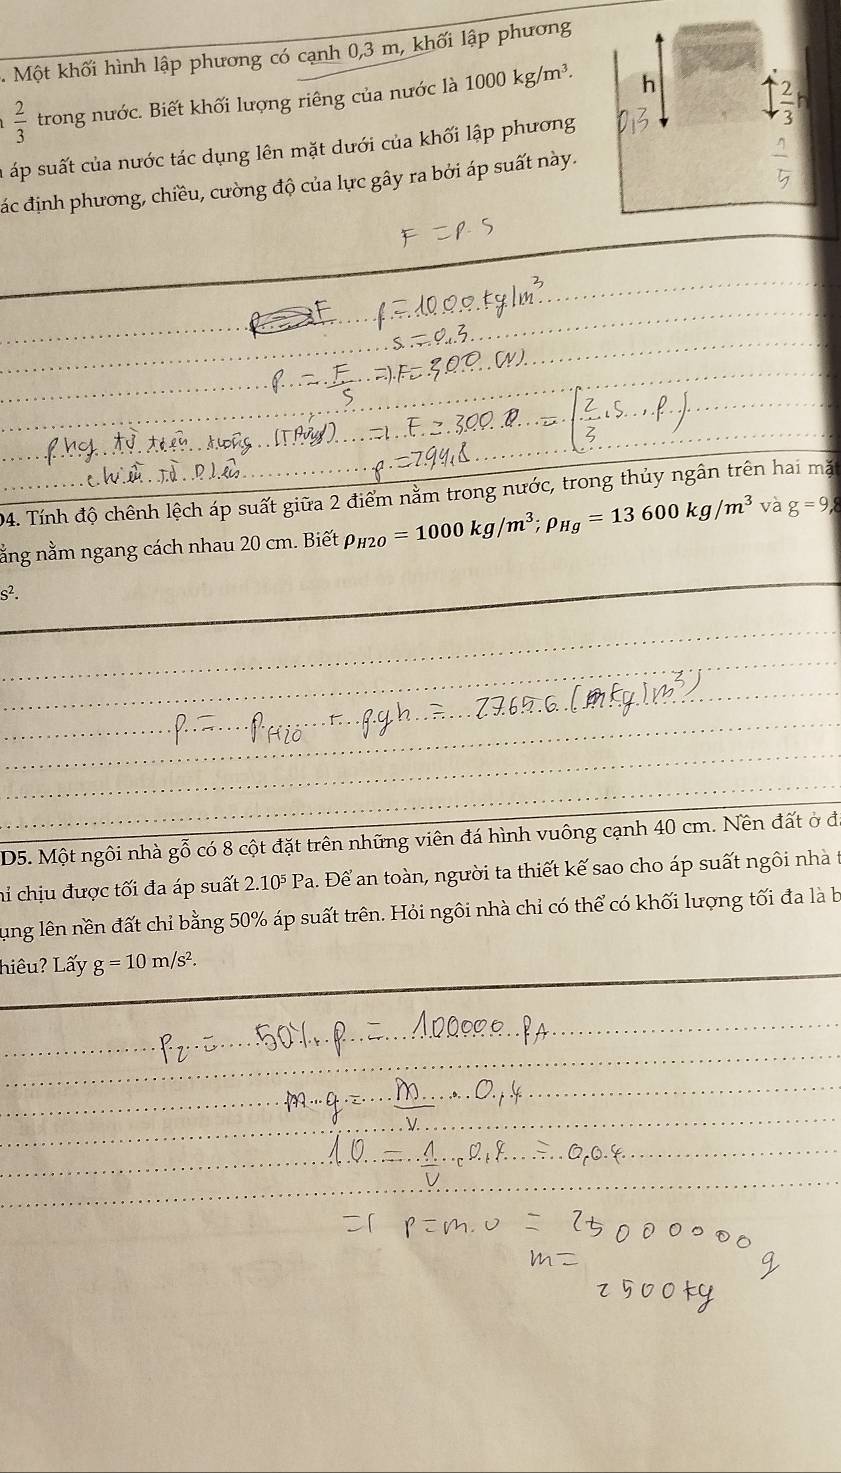 . Một khối hình lập phương có cạnh 0,3 m, khối lập phương
2/3 trong nước. Biết khối lượng riêng của nước là 1000 kg/m³.
áp suất của nước tác dụng lên mặt dưới của khối lập phương
ác định phương, chiều, cường độ của lực gây ra bởi áp suất này.
h
2/3 h
0,3
F = P. S
ρ = 1000 kg/m³
S = 0,3
P = F/S => F = 300 (N)
phg từ trên xuống
F = 300
2/3 . S . P
chiều từ lên
P = 294,8
04. Tính độ chênh lệch áp suất giữa 2 điểm nằm trong nước, trong thủy ngân trên hai mặ
ẳng nằm ngang cách nhau 20 cm. Biết ρH2O = 1000 kg/m³; ρHg = 13 600 kg/m³ và g = 9,8
s².
P = PH20 + ρgh = 27656 kg/m³)
D5. Một ngôi nhà gỗ có 8 cột đặt trên những viên đá hình vuông cạnh 40 cm. Nền đất ở đ
hỉ chịu được tối đa áp suất 2.10⁵ Pa. Để an toàn, người ta thiết kế sao cho áp suất ngôi nhà t
ụng lên nền đất chỉ bằng 50% áp suất trên. Hỏi ngôi nhà chỉ có thể có khối lượng tối đa là b
hiêu? Lấy g = 10 m/s².
P2 = 50%. P = 100000 PA
m.g = m/V . 0,4
10 = 1/V . 0,4 = 0,04
=> P = m.v = 25000000 g
m =
2500kg